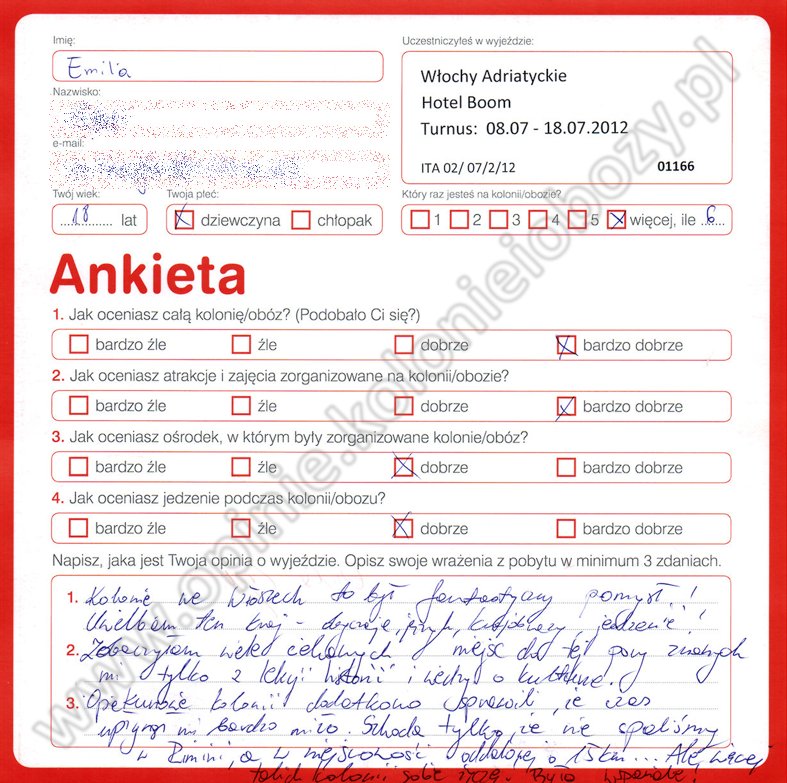 Imię:
Emilia
Nazwisko:
e-mail:
Twój wiek:
18 lat
Twoja płeć:
dziewczyna chłopak
Uczestniczyłeś w wyjeździe:
Włochy Adriatyckie
Hotel Boom
Turnus: 08.07 - 18.07.2012
ITA 02/ 07/2/12 01166
Który raz jesteś na kolonii/obozie?
1 2 3 4 5 więcej, ile 6
Ankieta
1. Jak oceniasz całą kolonię/obóz? (Podobało Ci się?)
bardzo źle źle dobrze bardzo dobrze
2. Jak oceniasz atrakcje i zajęcia zorganizowane na kolonii/obozie?
bardzo źle źle dobrze bardzo dobrze
3. Jak oceniasz ośrodek, w którym były zorganizowane kolonie/obóz?
bardzo źle źle dobrze bardzo dobrze
4. Jak oceniasz jedzenie podczas kolonii/obozu?
bardzo źle źle dobrze bardzo dobrze
Napisz, jaka jest Twoja opinia o wyjeździe. Opisz swoje wrażenia z pobytu w minimum 3 zdaniach.
1. Kolonie we Włoszech to był fantastyczny pomysł!
Uwielbiam ten kraj - język, krajobrazy, jedzenie!
2. Zobaczyłam wiele ciekawych miejsc do tej pory znanych
mi tylko z lekcji historii i wiedzy o kulturze.
3. Opiekunowie kolonii dodatkowo sprawili, że czas
upłynął mi bardzo miło. Szkoda tylko, że nie spaliśmy
w Rimini, a w miejscowości oddalonej o 15 km... Ale więcej
takich kolonii sobie życzę. Było wspaniale!
www.opinie.kolonieiobozy.pl